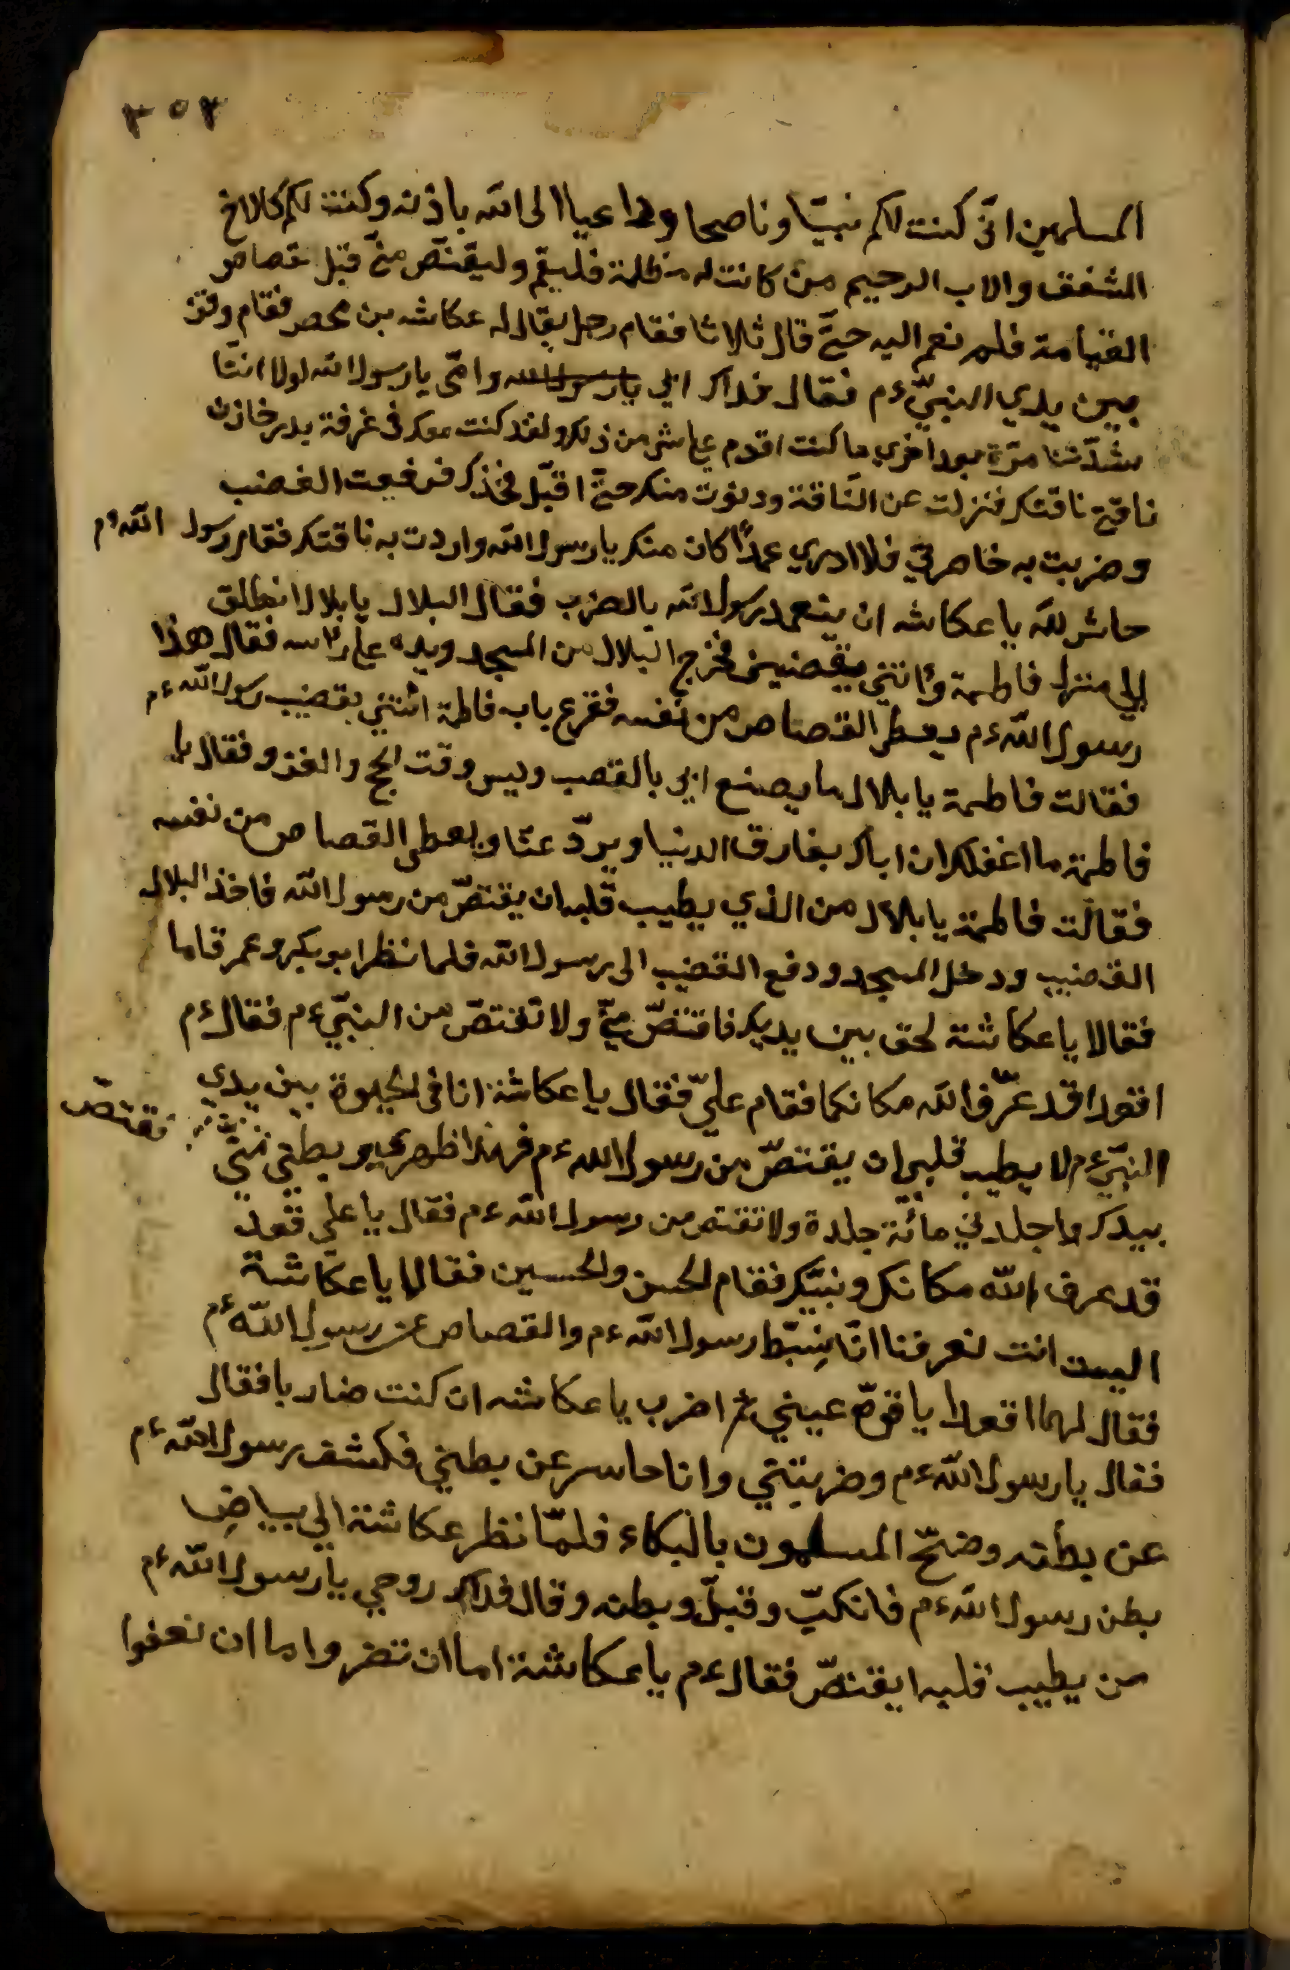 ٣٥٢
المسلمين انّى كنت لكم نبيّا وناصحا وداعيا الى الله باذنه وكنت لكم كالاخ
الشفق والاب الرحيم من كانت له مظلمة فليقم وليقتصّ منّي قبل قصاص
القيامة فلم نعم اليه حتّى قال ثلاثا فقام رجل يقال له عكاشه بن محصر فقام ووقف
بين يدي النبيّ ءم فقال فداك ابي يارسول الله وامّى يا رسول الله لولا انّنا
مرّة بعد اخرى ما كنت اقدم على شى من ذلك ولقد كنت معك فى غزفة بدر حاذت
ناقتي ناقتك فنزلت عن النّاقة ودنوت منك حتّى اقبّل فخذك فرفعت الغضب
وضربت به خاصرتي فلا ادري عمدًا كان منك يا رسول الله واردت به ناقتك فقال رسول الله ءم
حاش لله يا عكاشه ان يتعمد رسول الله بالضرب فقال البلال يا بلال انطلق
الى منزل فاطمة وأتني بقضيبى فخرج البلال من المسجد ويده على رأسه فقال هذا
رسول الله ءم يعطى القصاص من نفسه فقرع باب فاطمة ائتني بقضيب رسول الله ءم
فقالت فاطمة يا بلال ما يصنع ابي بالقصب وليس وقت الحج والغزو فقال يا
فاطمة ما اغفلك ان اباك يفارق الدنيا ويردّ عنّا ويعطى القصاص من نفسه
فقالت فاطمة يا بلال من الذي يطيب قلبه ان يقتصّ من رسول الله فاخذ البلال
القضيب ودخل المسجد ودفع القضيب الى رسول الله فلما نظر ابو بكر وعمر قاما
فقالا يا عكاشة لحق بين يديك فاقتصّ منّي ولا تقتصّ من النبيّ ءم فقال ءم
اقعدا قد عرّف الله مكانكما فقام عليّ فقال يا عكاشة انا فى الحيوة بين يدي
النبيّ ءم لا يطيب قلبي ان يقتصّ من رسول الله ءم فهذا ظهري وبطني
تقتصّ
بيدك واجلدني مائة جلدة ولا تقتص من رسول الله ءم فقال يا على قعد
قد عرف الله مكانك ونيّتك فقام الحسن والحسين فقالا يا عكّاشة
اليست انت تعرفنا انّا سِبطا رسول الله ءم والقصاص عن رسول الله ءم
فقال لهما اقعدا يا قوّة عيني ثم اضرب يا عكاشه ان كنت ضاربا فقال
فقال يا رسول الله ءم وضربتني وانا حاسر عن بطني فكشف رسول الله ءم
عن بطنه وضجّ المسلمون بالبكاء فلمّا نظر عكاشة الى بياضِ
بطن رسول الله ءم فانكبّ وقبلّ وبطنه وقال فداك روحي يا رسول الله ءم
من يطيب قلبه ايقتصّ فقال ءم يا عكاشة اما ان تضر واما ان تعفوا